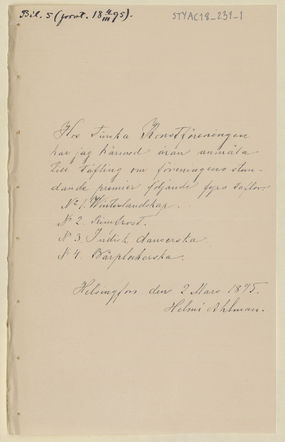 Bil. 5 (fornt. 18 4/III 95).
STYAC18_231_1
Hos Finska Konstföreningen
har jag härmed äran anmäla
till täfling om föreningens stun-
dande premier följande fyra taflor
No 1. Winterlandskap.
No 2. Rimfrost.
No 3. Indisk danserska
No 4. Bärplockerska.
Helsingfors den 2 Mars 1895.
Helmi Ahlman.